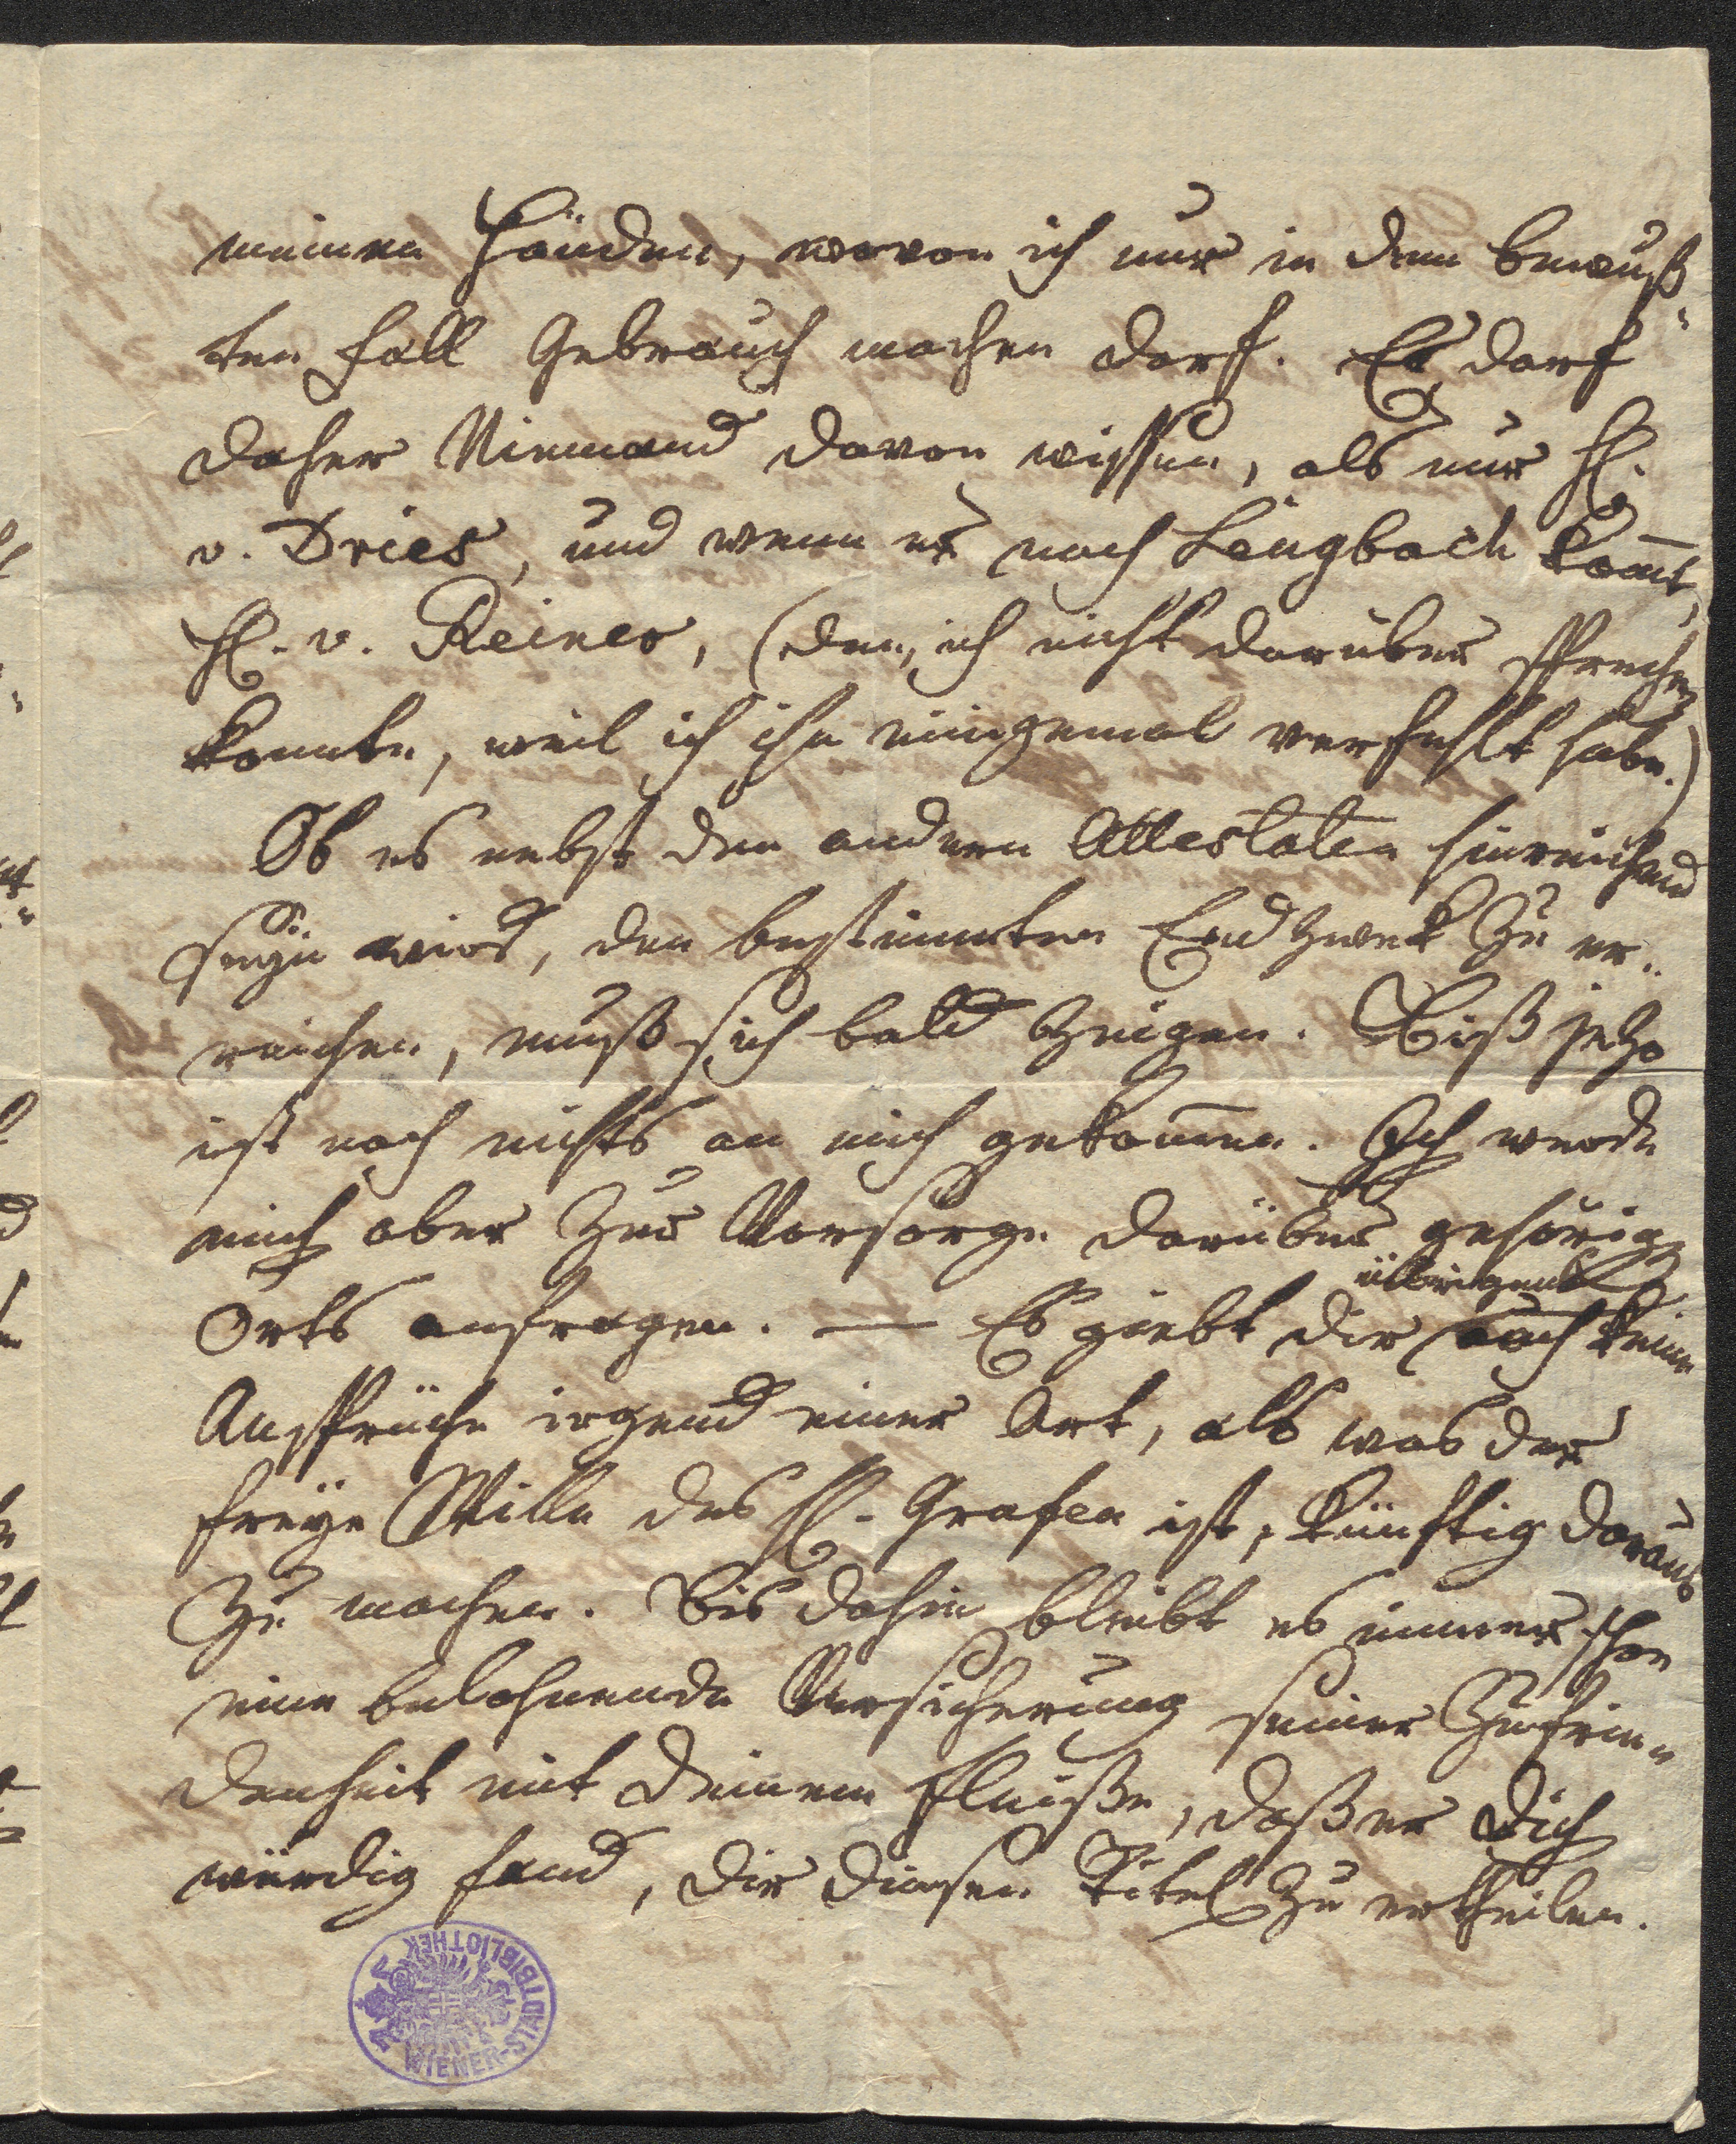 meinen Händen, wovon ich nur in dem bewuß-
ten Fall Gebrauch machen darf. Es darf
daher Niemand davon wissen, als nur H.
v. Dries, und wenn er nach Lengbach kom̅t,
H. v. Reiner, (den ich nicht darüber sprechen
konnte, weil ich ihn einigemal verfehlt habe.)
Ob es nebst den andern Attestaten hinreichend
seyn wird, den bestimmten Endzwek zu er-
reichen, muß sich bald zeigen. Biß jezo
ist noch nichts an mich gekom̅en. Ich werde
mich aber zur Vorsorge darüber gehörig
übrigens
Orts anfragen. — Es giebt dir auch keine
Ansprüche irgend einer Art, als was der
freye Wille des H. Grafen ist, künftig daraus
zu machen. Bis dahin bleibt es immer schon
eine belohnende Versicherung seiner Zufrie-
denheit mit deinem Fleiße, daß er dich
würdig fand, dir diesen Titel zu ertheilen.
WIENER-STADTBIBLIOTHEK